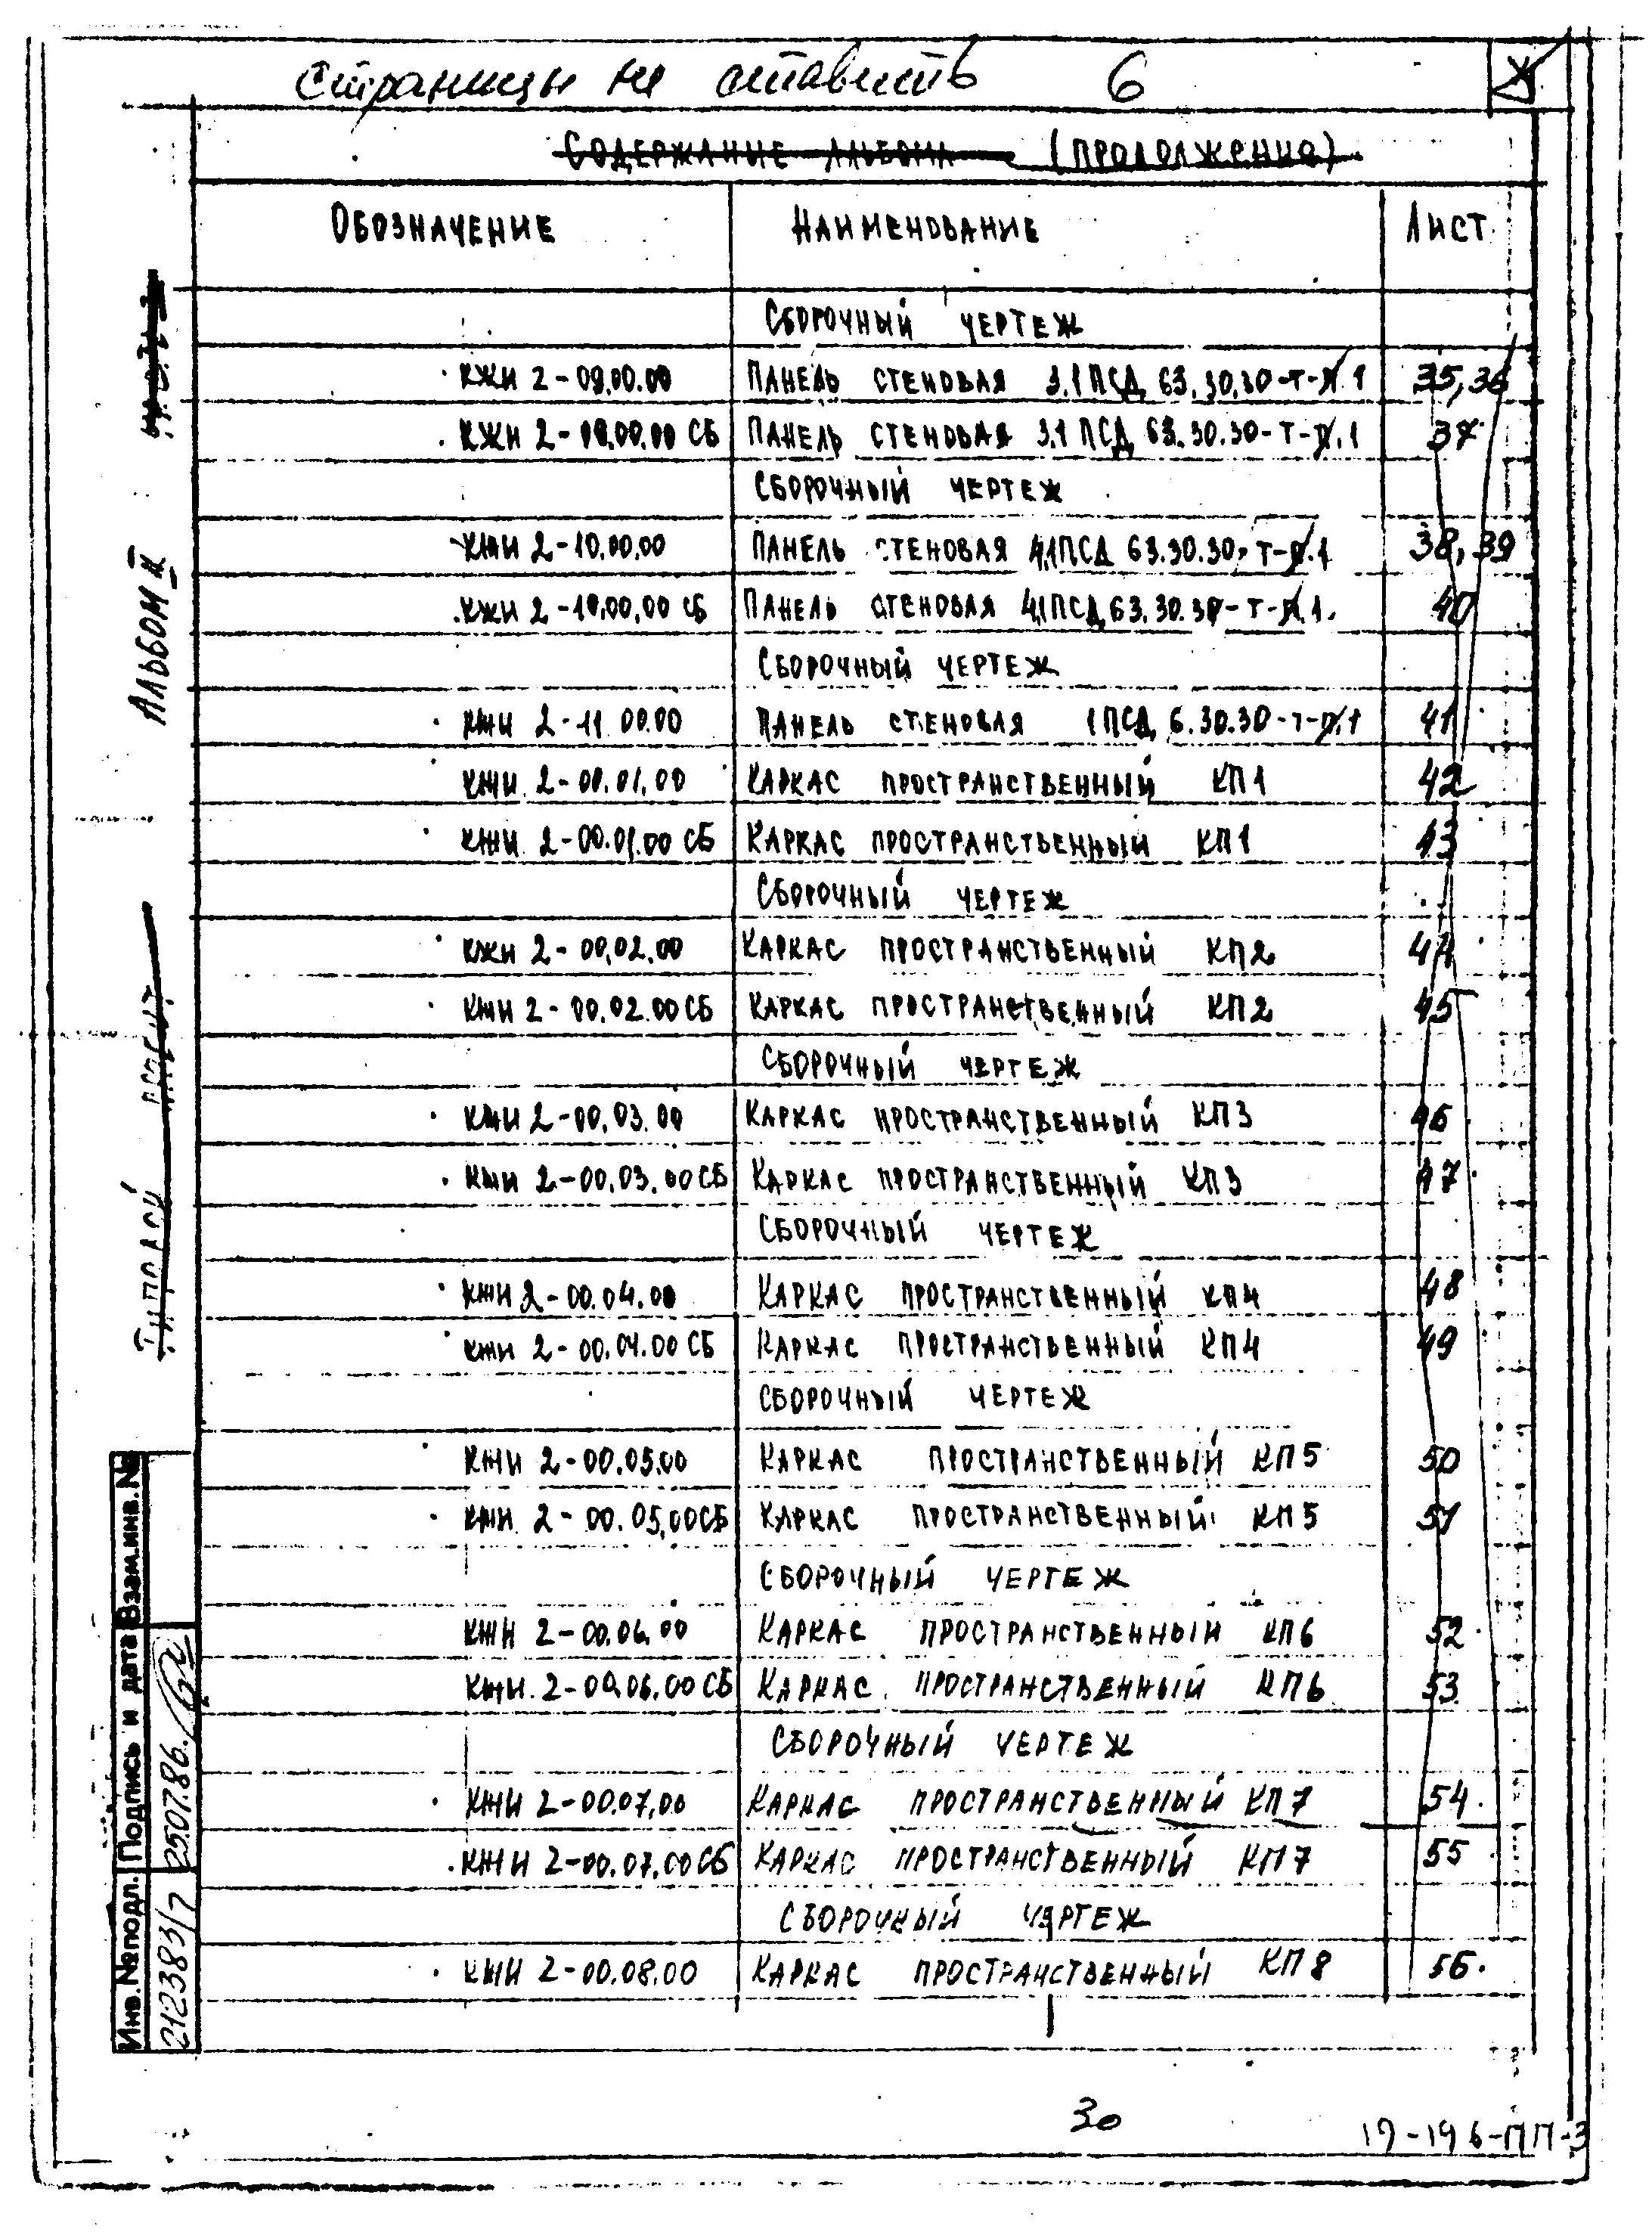 Страницы не ставить 6
Содержание альбома (продолжение)
Обозначение Наименование Лист
Сборочный чертеж
КЖИ 2-09.00.00 Панель стеновая 3.1ПСД 63.30.30-Т-Я.1 35,36
КЖИ 2-09.00.00 СБ Панель стеновая 3.1ПСД 63.30.30-Т-Я.1 37
Сборочный чертеж
КЖИ 2-10.00.00 Панель стеновая 4.1ПСД 63.30.30-Т-Я.1 38,39
КЖИ 2-10.00.00 СБ Панель стеновая 4.1ПСД 63.30.30-Т-Я.1 40
Сборочный чертеж
КЖИ 2-11.00.00 Панель стеновая 1ПСД 6.30.30-Т-Я.1 41
КЖИ 2-00.01.00 Каркас пространственный КП1 42
КЖИ 2-00.01.00 СБ Каркас пространственный КП1 43
Сборочный чертеж
КЖИ 2-00.02.00 Каркас пространственный КП2 44
КЖИ 2-00.02.00 СБ Каркас пространственный КП2 45
Сборочный чертеж
КЖИ 2-00.03.00 Каркас пространственный КП3 46
КЖИ 2-00.03.00 СБ Каркас пространственный КП3 47
Сборочный чертеж
КЖИ 2-00.04.00 Каркас пространственный КП4 48
КЖИ 2-00.04.00 СБ Каркас пространственный КП4 49
Сборочный чертеж
КЖИ 2-00.05.00 Каркас пространственный КП5 50
КЖИ 2-00.05.00 СБ Каркас пространственный КП5 51
Сборочный чертеж
КЖИ 2-00.06.00 Каркас пространственный КП6 52
КЖИ 2-00.06.00 СБ Каркас пространственный КП6 53
Сборочный чертеж
КЖИ 2-00.07.00 Каркас пространственный КП7 54
КЖИ 2-00.07.00 СБ Каркас пространственный КП7 55
Сборочный чертеж
КЖИ 2-00.08.00 Каркас пространственный КП8 56
Альбом II
Типовой проект
Взам.инв.№
Подпись и дата 25.07.86.
Инв.№подл. 212383/7
30
19-196-ПП-3